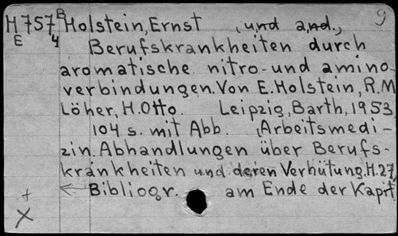 H757B Holstein, Ernst , und and., 9
E 4 Berufskrankheiten durch
aromatische nitro- und amino-
verbindungen. Von E. Holstein, R.M.
Löher, H. Otto. Leipzig, Barth, 1953
104 s. mit Abb. (Arbeitsmedi-
zin, Abhandlungen über Berufs-
krankheiten und deren Verhütung. H. 27)
+ ← Bibliogr. am Ende der Kapit.
X